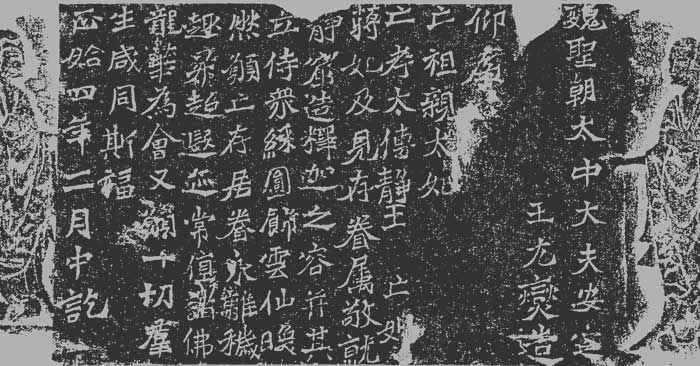 魏聖朝太中大夫安定
王元燮造
仰為
亡祖親太妃
亡考太傅靜王亡妣
蔣妃及見存眷屬敬就
靜窟造釋迦之容并其
立侍眾綵圓飾雲仙煥
然願亡存居眷永離穢
趣昇超遐迹常值諸佛
龍華為會又願一切羣
生咸同斯福
正始四年二月中訖